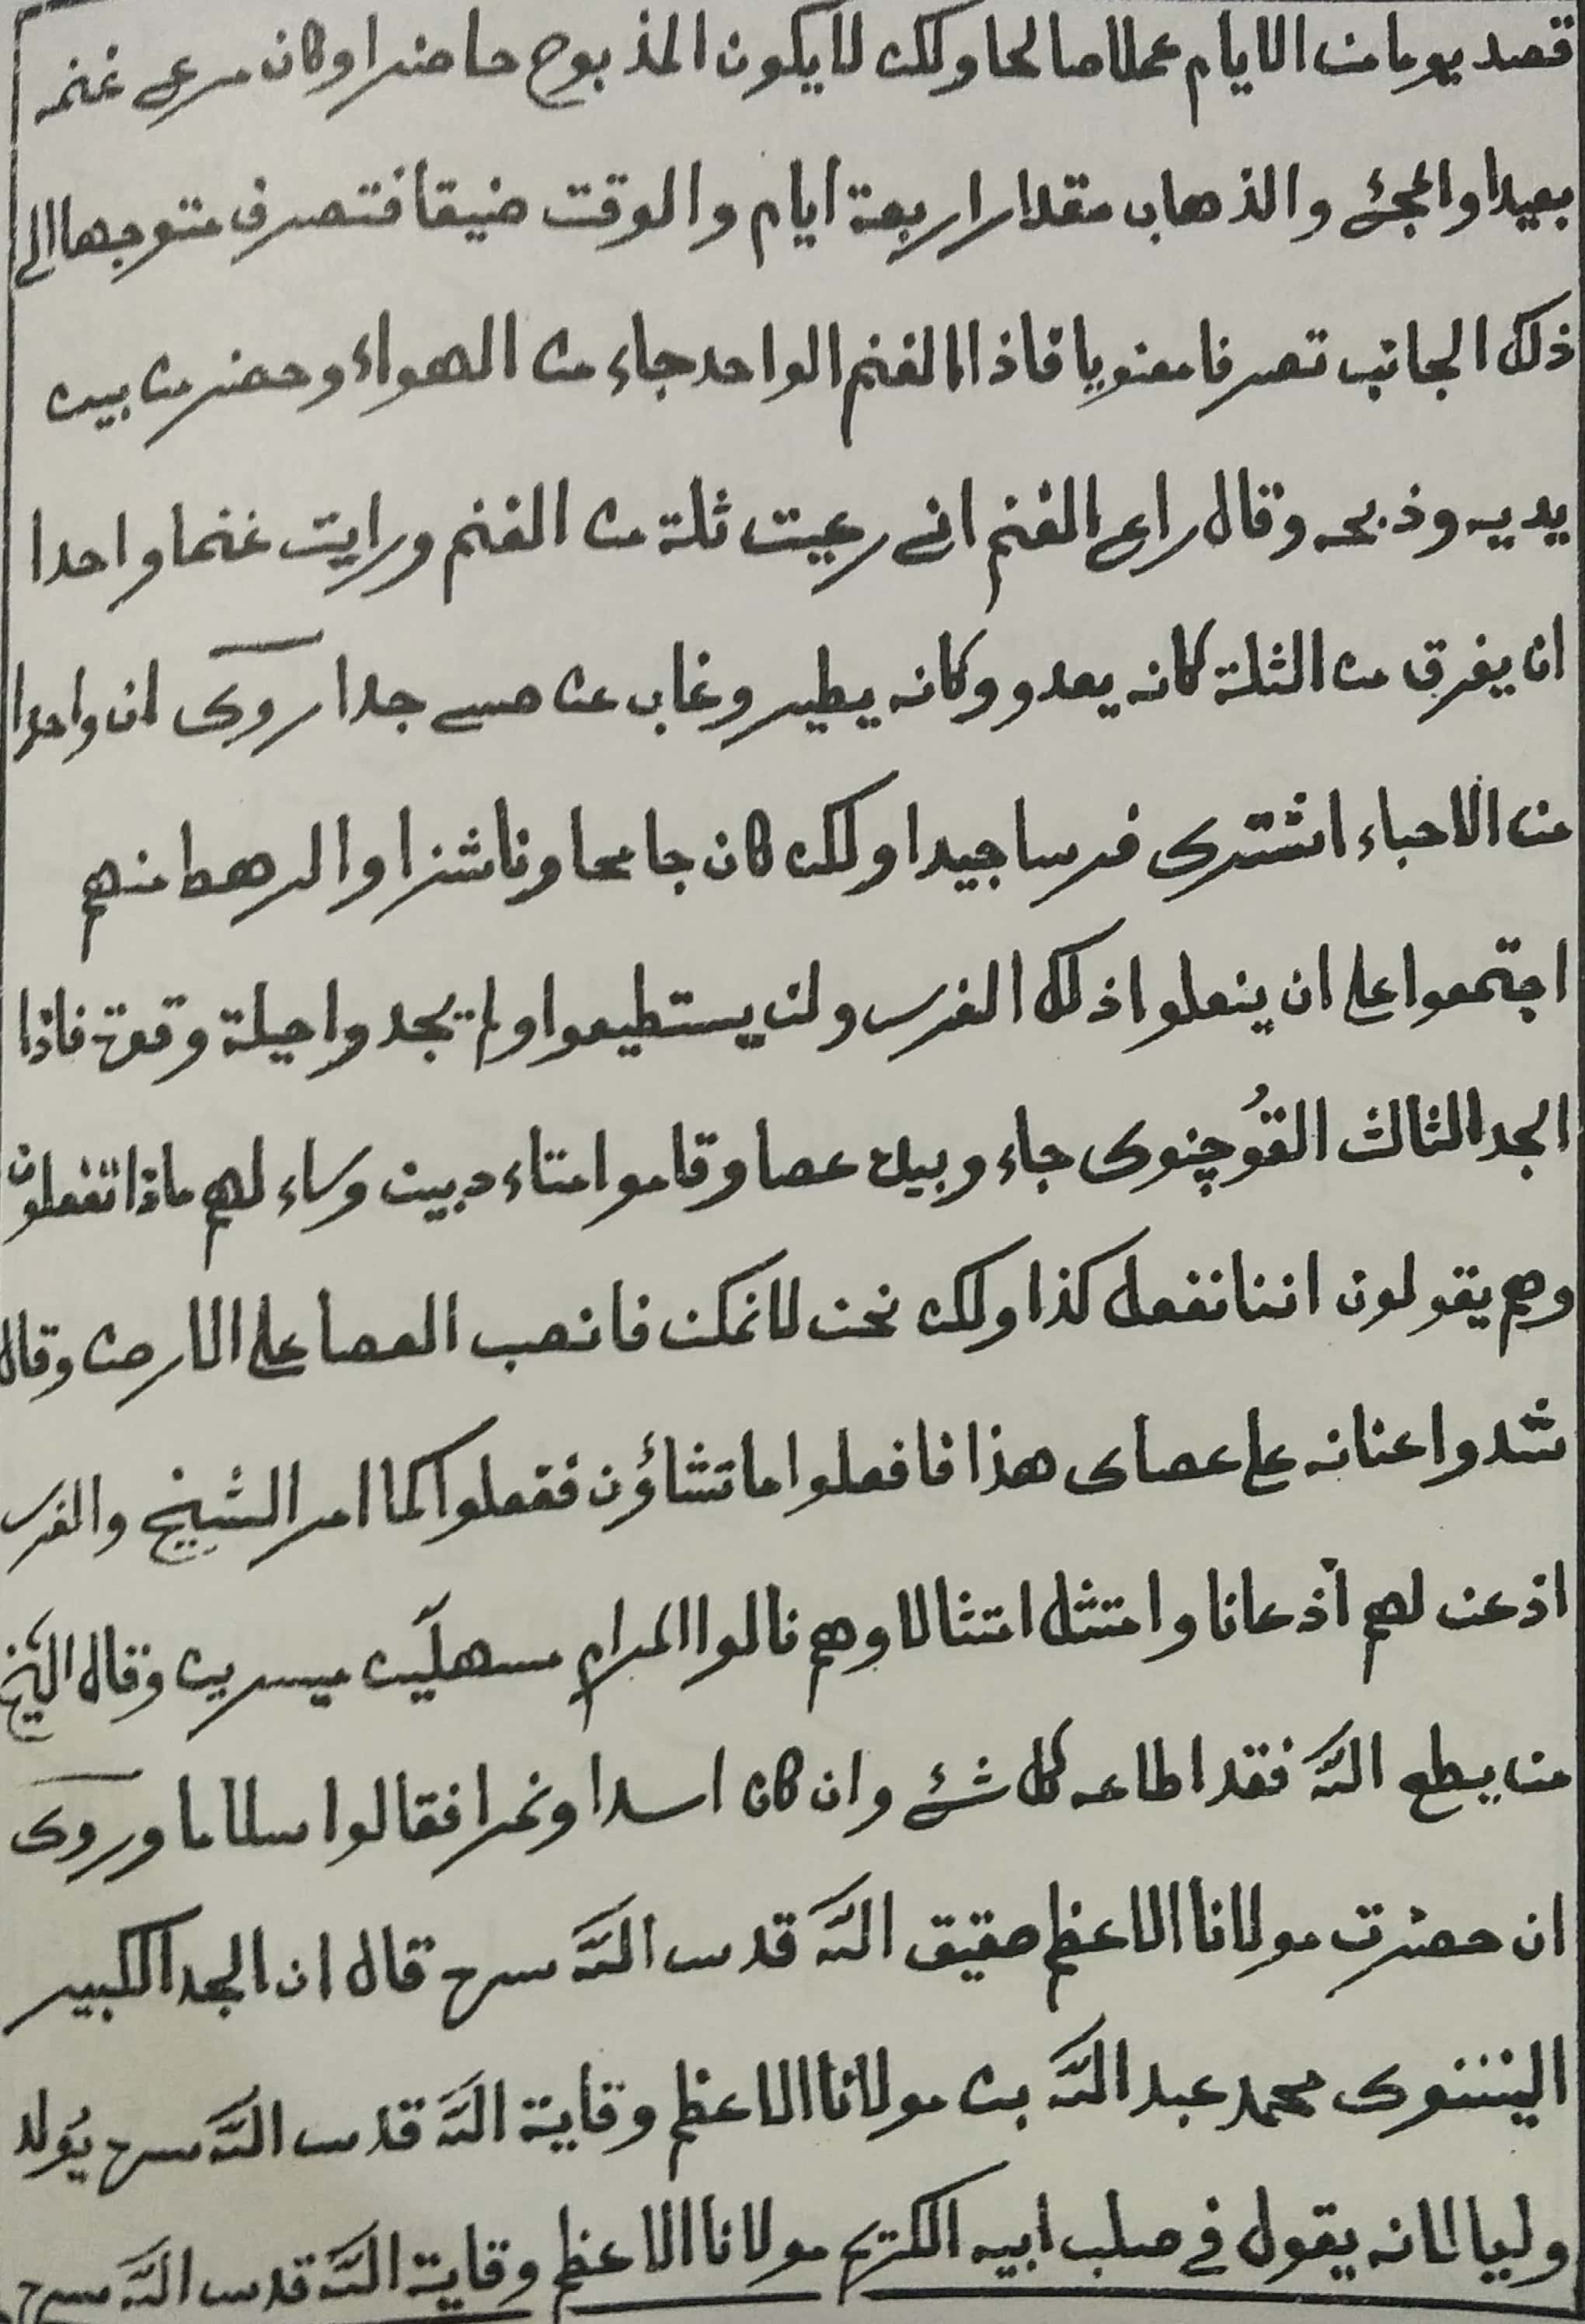 قصد يوما من الايام عملا صالحا ولكن لا يكون المذبوح حاضرا وكان مرعى غنمه
بعيدا والمجئ والذهاب مقدار اربعة ايام والوقت ضيقا فتصرف متوجها الى
ذلك الجانب تصرفا معنويا فاذا الغنم الواحد جاء من الهواء وحضر من بين
يديه وذبحه وقال راعى الغنم انى رعيت ثلة من الغنم ورايت غنما واحدا
ان يفرق من الثلة كانه يعدو وكانه يطير وغاب عن حسى جدا روى ان واحدا
من الاحباء اشترى فرسا جيدا ولكن كان جامحا وناشزا والرهط منهم
اجتمعوا على ان ينعلوا ذلك الفرس ولن يستطيعوا ولم يجدوا حيلة وقوة فاذا
الجد الثالث القُوچنوى جاء وبيده عصا وقاموا متاء دبين وساء لهم ماذا تفعلون
وهم يقولون اننا نفعل كذا ولكن نحن لا نمكن فانصب العصا على الارض وقال
شدوا عنانه على عصاى هذا فافعلوا ما تشاؤن ففعلوا كما امر الشيخ والفرس
اذعن لهم اذعانا وامتثل امتثالا وهم نالوا المرام مسهلّين ميسرين وقال الشيخ
من يطع اللّه فقد اطاعه كل شئ وان كان اسدا ونمرا فقالوا سلاما وروى
ان حضرت مولانا الاعظم حقيق اللّه قدس اللّه سره قال ان الجد الكبير
الينننوى محمد عبد اللّه بن مولانا الاعظم وقاية اللّه قدس اللّه سره يُولد
وليا لانه يقول فى صلب ابيه الكريم مولانا الاعظم وقاية اللّه قدس اللّه سره